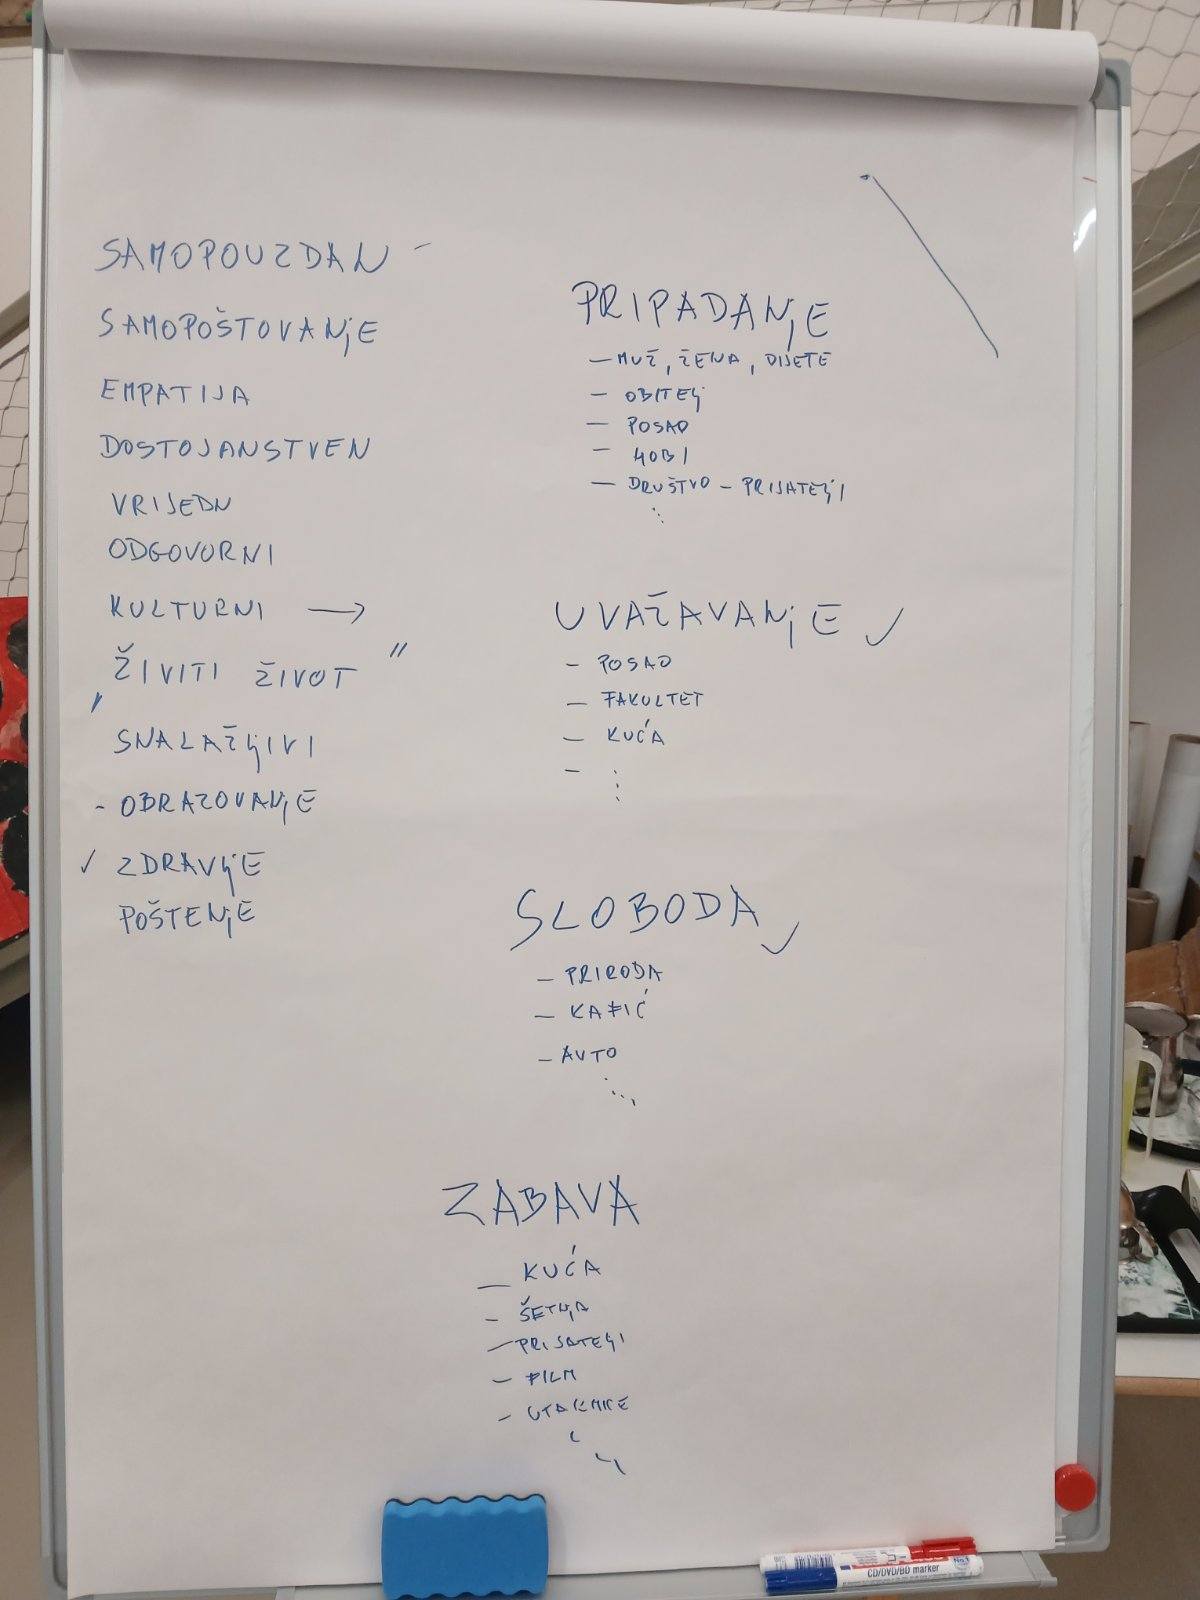 SAMOPOUZDAN -
SAMOPOŠTOVANJE
EMPATIJA
DOSTOJANSTVEN
VRIJEDN
ODGOVORNI
KULTURNI →
„ŽIVITI ŽIVOT"
SNALAŽLJIVI
- OBRAZOVANJE
✓ ZDRAVLJE
POŠTENJE
PRIPADANJE
- MUŽ, ŽENA, DIJETE
- OBITELJ
- POSAO
- HOBI
- DRUŠTVO - PRIJATELJI
UVAŽAVANJE ✓
- POSAO
- FAKULTET
- KUĆA
-
SLOBODA ✓
- PRIRODA
- KAFIĆ
- AUTO
ZABAVA
- KUĆA
- ŠETNJA
- PRIJATELJI
- FILM
- UTAKMICE
CD/DVD/BD marker